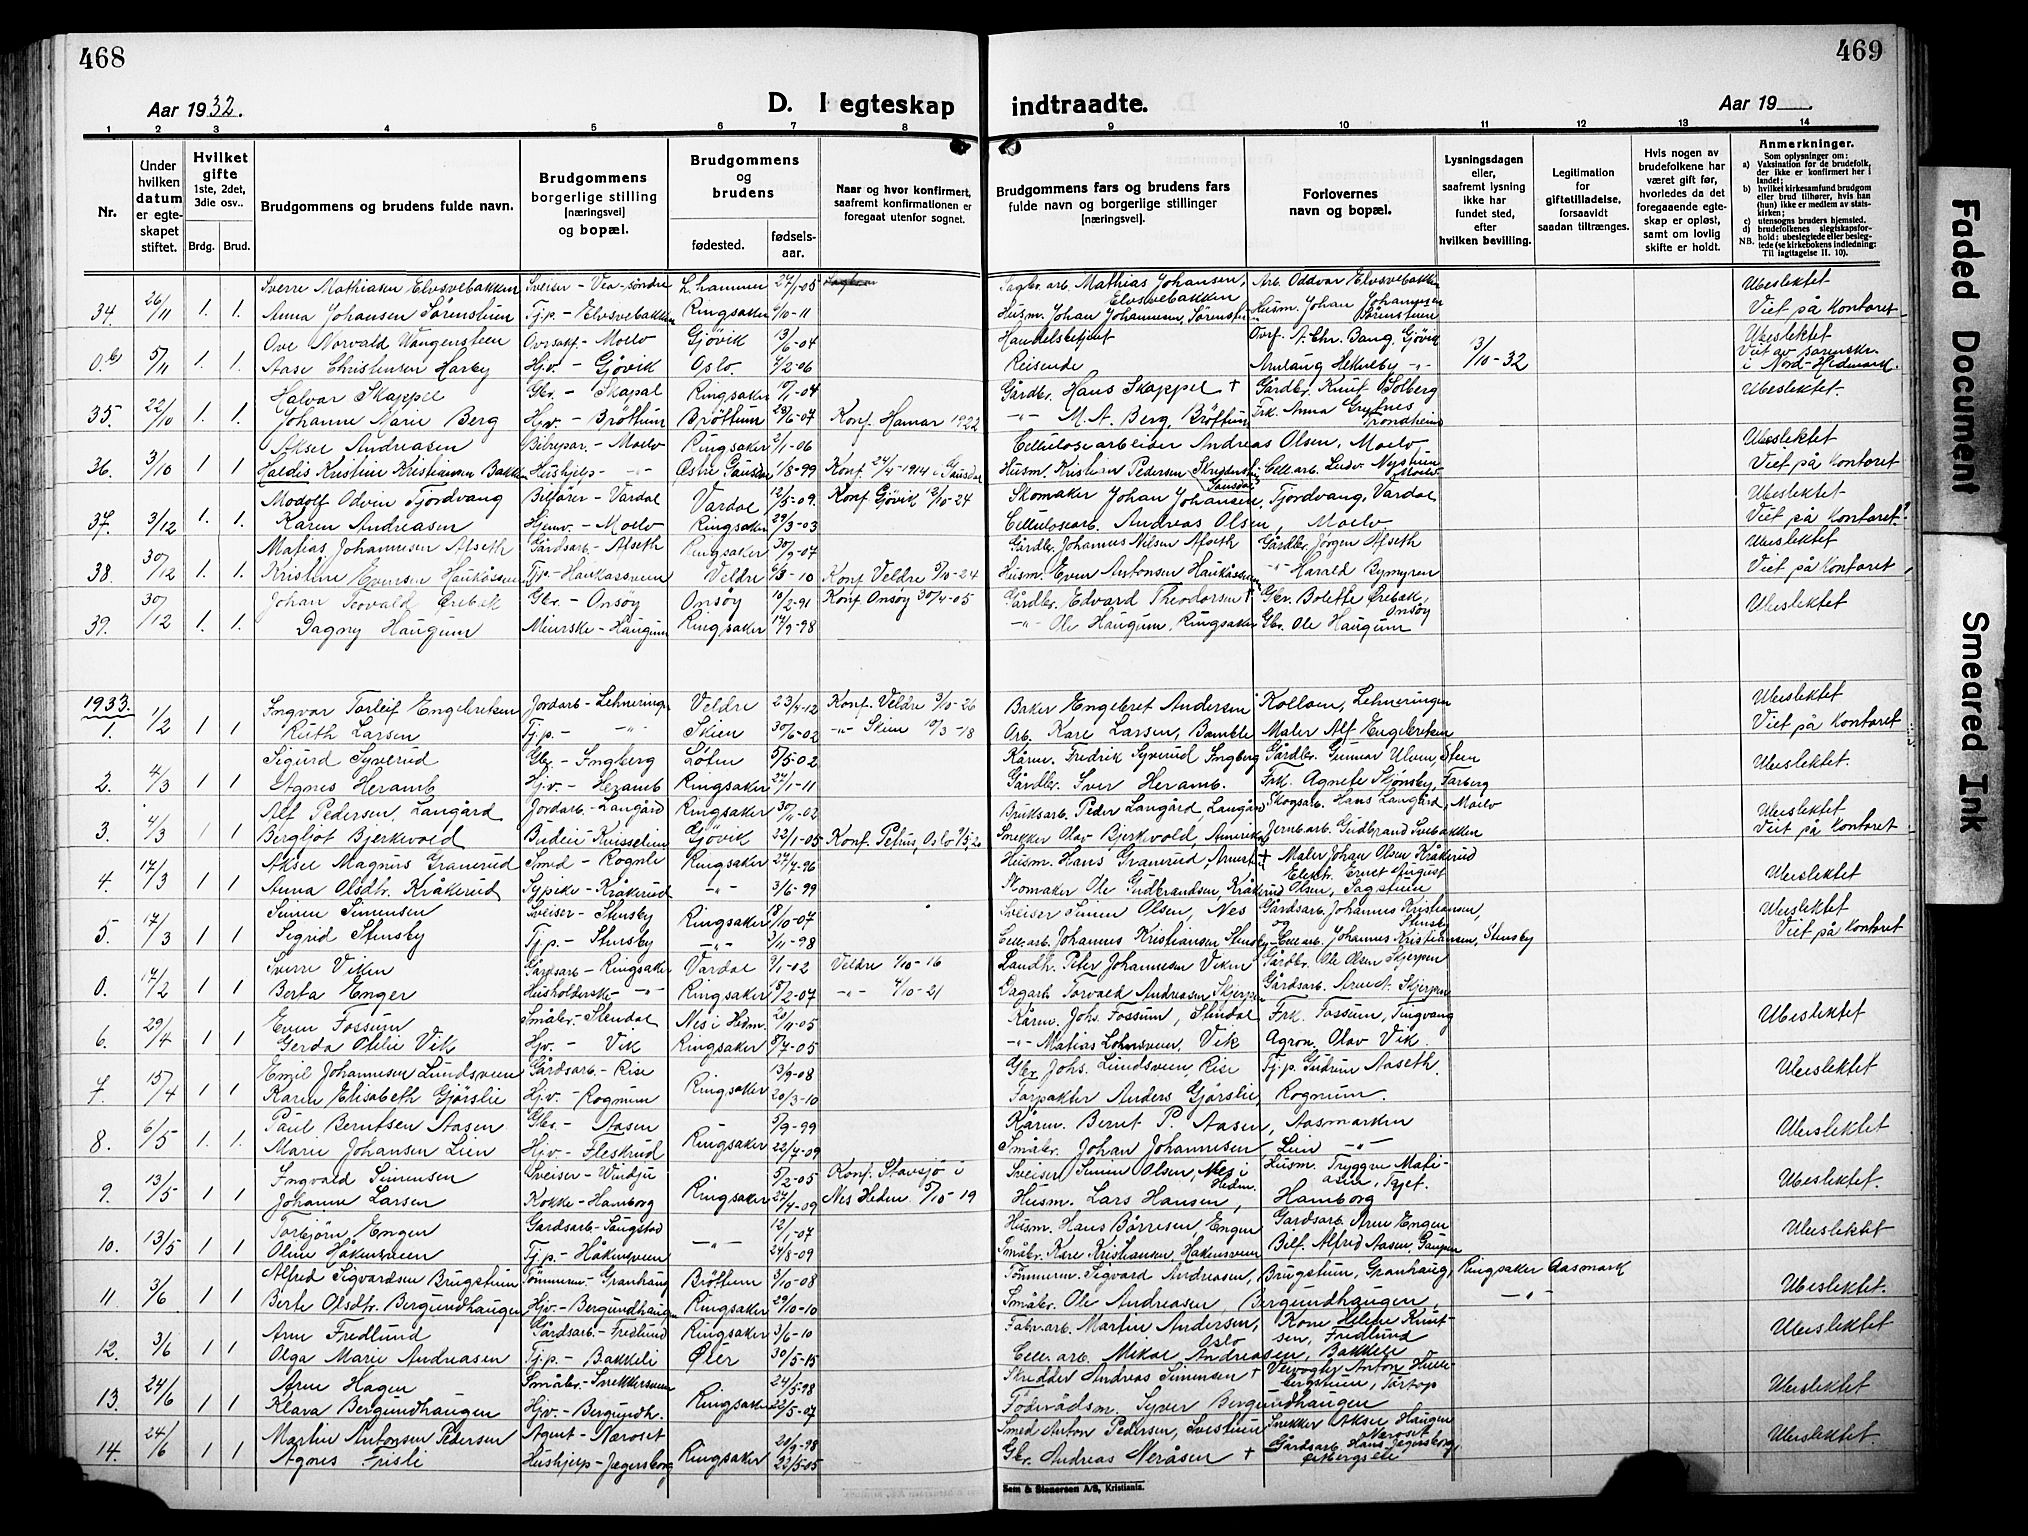 468
Aar 1932.
D. I egteskap
1 2 3 4 5 6 7 8
Nr.
Under hvilken datum er egteskapet stiftet.
Hvilket gifte 1ste, 2det, 3die osv..
Brdg. Brud.
Brudgommens og brudens fulde navn.
Brudgommens borgerlige stilling [næringsvei] og bopæl.
Brudgommens og brudens
fødested.
fødsels-aar.
Naar og hvor konfirmert, saafremt konfirmationen er foregaat utenfor sognet.
34. 26/11 1. 1. Sverre Mathiasen Elvsvebakken Sveiser - Vea-søndre L.hammer 27/1-05
Anna Johansen Sörenstuen Tj.p. - Elvsvebakken Ringsaker 9/10-11
5/11 1. 1. Ove Norvald Wangensteen Moelv Gjövik 13/6-04
Aase Christensen Hj.v. - Gjövik Oslo. 4/2-06
35. 22/10 1. 1. Halvar Skappel Gbr. - Ringsaker
Johanne Marie Berg Hj.v. - Bröttum Bröttum 28/6-07 Konf. Hamar 1922
36. 3/10 1. 1. Aksel Andreasen Bilrepar. - Moelv Ringsaker 2/1-06
Haldis Kristine Kristiansen Bakken Hushjelp - -"- Østre Gausdal 1/8-99 Konf. 24/4-1914 i Gausdal
37. 3/12 1. 1. Modolf Odvin Fjordvang Bilförer - Vardal Vardal 12/5-09. Konf. Gjövik 12/10-24
Karen Andreasen Hjemv. - Moelv Ringsaker 29/3-03
38. 30/12 1. 1. Matias Johannesen Afseth Gårdsarb. - Afseth Ringsaker 30/9-07
Kristine Evensen Haukåssveen Tj.p. - Haukåssveen Veldre 6/3-10 Konf. Veldre 5/10-24
39. 30/12 1. 1. Johan Teovald Ørebek Gbr. - Onsøy Onsøy 10/2-91 Konf. Onsøy 30/4-05
Dagny Haugum Meierske - Haugum Ringsaker 14/9-98
1933.
1. 1/2 1 1 Ingvar Torleif Engebretsen Jordarb - Lehneringen Veldre 23/4-12 Konf. Veldre 3/10-26
Ruth Larsen Tj.p. - -"- Skien 30/6-02 -"- Skien 10/3-18
2. 4/3 1 1 Sigurd Syverud Gbr. - Ingberg Löten 5/5-02
Agnes Heramb Hj.v. - Heramb Ringsaker 27/1-11
3. 4/3 1 1 Alf Pedersen Langård Jordarb. - Langård Ringsaker 30/11-02
Bergljot Bjerkvold Budeie - Kvisselien Gjövik 22/1-05 Konf. Petrus, Oslo
4. 17/3 1 1 Aksel Magnus Granerud Smed - Rognli Ringsaker 27/7-96
Anna Olsdtr. Kråkerud Sypike - Kråkerud -"- 3/6-99
5. 17/3 1 1 Simen Simensen Sveiser - Stensby Ringsaker 18/10-07
Sigrid Stensby Tj.p. - Stensby -"- 3/11-98
0. 17/2 1 1 Sverre Viken Gårdsarb - Ringsaker Vardal 9/1-02 Veldre 1/10-16
Berta Enger Husholderske -"- Ringsaker 18/2-07 -"- 4/10-21
6. 29/4 1 1 Even Fossum Småbr. - Stendal Nes i Hedm. 20/11-05
Gerda Otelie Vik Hj.v. - Vik Ringsaker 5/7-05
7. 15/4 1 1 Emil Johannesen Lundsveen Gårdsarb. - Rise Ringsaker 13/9-08
Karen Elisabeth Gjörslie Hj.v. - Rognum 20/3-10
8. 6/5 1. 1. Paul Berntsen Aasen Gbr. - Aasen Ringsaker 5/9-99
Marie Johansen Lien Hj.v. - Fleskrud 22/7-09
9. 13/5 1 1 Ingvald Simensen Sveiser - Windju Ringsaker 5/2-05 Konf. Stavsjö i
Johanne Larsen Kokke - Hamborg 27/4-09 Nes Hedm. 5/10-19
10. 13/5 1 1 Torbjörn Engen Gardsarb - Saugstad -"- 12/1-07
Oline Håkensveen Tj.p. - Håkensveen 24/8-09
11. 3/6 1 1 Alfred Sigvardsen Brugstuen Tömmerm. - Granhaug Bröttum 9/10-08
Berte Olsdtr. Bergundhaugen Hj.v. - Bergundhaugen Ringsaker 29/10-10
12. 3/6 1 1 Arne Fredlund Gårdsarb. - Fredlund Ringsaker 3/6-10
Olga Marie Andreasen Tj.p. - Bakkeli Øier 30/5-15
13. 24/6 1 1 Arne Hagen Småbr. - Snekkersveen Ringsaker 24/5-98
Klara Bergundhaugen Hj.v. - Bergundh. 22/5-07
14. 24/6 1 1 Martin Antonsen Pedersen Agent - Næroset Ringsaker 20/9-98
Agnes Hushjelp - Jægersborg 22/5-05
469
indtraadte.
Aar 19
9 10 11 12 13 14
Brudgommens fars og brudens fars fulde navn og borgerlige stillinger [næringsvei].
Forlovernes navn og bopæl.
Lysningsdagen eller, saafremt lysning ikke har fundet sted, efter hvilken bevilling.
Legitimation for giftetilladelse, forsaavidt saadan tiltrænges.
Hvis nogen av brudefolkene har været gift før, hvorledes da det foregaaende egteskap er opløst, samt om lovlig skifte er holdt.
Anmerkninger.
Som oplysninger om:
a) Vaksination for de brudefolk, der ikke er konfirmert her i landet;
b) hvilket kirkesamfund brudgom eller brud tilhører, hvis han (hun) ikke er medlem av statskirken;
c) utensogns bruders hjemsted.
d) brudefolkenes slegtskapsforhold: ubeslegtede eller beslegtede (se kirkebokens indledning:
NB. Til iagttagelse II. 10).
Sagbr. arb. Mathias Johansen, Elvsvebakken Arb. Oddvar Elvsvebakken Ubeslektet
Husm. Johan Johannesen, Sörenstuen Husm. Johan Johannesen Sörenstuen Viet på kontoret
Handelsbetjent A. Chr. Bang, Gjövik 3/10-32 Ubeslektet
Reisende -"- Viet av sorenskr. i Nord-Hedmark.
Gårdbr. Hans Skappel + Gårdbr. Knut Solberg Ubeslektet.
-"- M. A. Berg, Bröttum Frk. Anna Grytnes Trondheim
Cellulosearbeider Andreas Olsen, Moelv Ubeslektet
Husm. Kristian Pedersen Gausdal Cell.arb. Ludv. Nystuen Moelv Viet på kontoret
Skomaker Johan Johansen, Fjordvang, Vardal Ubeslektet
Cellulosearb. Andreas Olsen, Moelv Viet på kontoret?
Gårdbr. Johannes Nilsen Afseth Gårdbr. Jörgen Afseth Ubeslektet
Husm. Even Antonsen Haukåssveen -"- Harald Bymyren Viet på kontoret
Gårdbr. Edvard Theodorsen + Gbr. Bolette Ørebek, Onsöy Ubeslektet
-"- Ole Haugum, Ringsaker Gbr. Ole Haugum
Baker Engebret Andersen Kolloen, Lehneringen Ubeslektet
Arb. Kare Larsen, Bamble Maler Alf Engebretsen Viet på kontoret
Kårm. Fredrik Syverud Ingberg Gårdbr. Gunnar Ulven, Steen Ubeslektet.
Gårdbr. Iver Heramb. Frk. Agnete Skjönsby, Farberg
Bruksarb. Peder Langård, Langård Skogsarb. Hans Langård, Moelv Ubeslektet
Snekker Olav Bjerkvold, Amerika Jernb.arb. Gudbrand Svebakken Viet på kontoret
Husm. Hans Granerud, + Maler Johan Olsen Kråkerud Ubeslektet
Skomaker Ole Gudbrandsen, Kråkerud Elektr. Ernst August Olsen, Sagstuen
Sveiser Simen Olsen, Nes Gårdsarb. Johannes Kristiansen, Stensby Ubeslektet
Cell.arb. Johannes Kristiansen Stensby og Cell.arb. Johannes Kristiansen, Stensby Viet på kontoret
Landh. Peter Johannesen Viken Gårdbr. Ole Olsen Skjerpen
Dagarb. Torvald Andreasen Skjerpen Gårdsarb. Arne A. Skjerpen
Kårm. Johs. Fossum, Stendal Frk. Fossum, Tingvang Ubeslektet
-"- Matias Lohnsveen, Vik Agron. Olav Vik.
Gbr. Johs. Lundsveen, Rise Tj.p. Gudrun Aaseth. Ubeslektet
Forpakter Anders Gjörslie, Rognum.
Kårm. Bernt P. Aasen, Aasmarken Ubeslektet
Småbr. Johan Johannesen, Lien -"-
Sveiser Simen Olsen, Nes i Hedm. Husm. Tryggve Matiasen, Ubeslektet.
Husm. Lars Hansen, Hamborg
Husm. Hans Börresen Engen Gardsarb. Arne Engen Ubeslektet
Småbr. Kare Kristiansen, Håkensveen Bilf. Alfred Aasen, Gaupen
Tömmerm. Sigvard Andreasen, Brugstuen, Granhaug, Ringsaker Aasmark Ubeslektet.
Småbr. Ole Andreasen, Bergundhaugen, -"-
Fabr.arb. Martin Andersen, Oslo Kone Helene Knutsen, Fredlund Ubeslektet
Cell.arb. Mikal Andreasen, Bakkeli
Skredder Andreas Simensen + Veivogter Anton Ubeslektet
Föderådsm. Syver Bergundhaugen
Smed Anton Pedersen, Snekker Aksel Haugen Næroset Ubeslektet.
Gbr. Andreas Neråsen + Gårdsarb. Hans Jægersborg
Sem & Stenersen A/S, Kristiania.
Faded Document
Smeared Ink